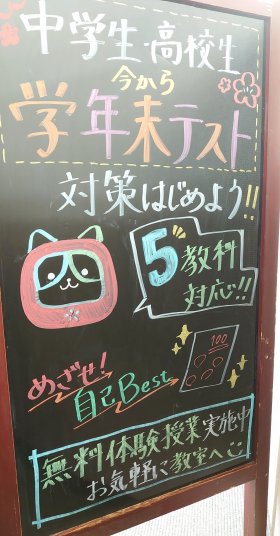 中学生・高校生
今から
学年末テスト
対策はじめよう!!
5教科
対応!!
めざせ!
自己Best
100
無料体験授業実施中
お気軽に教室へ